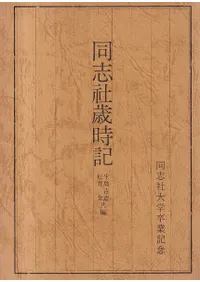 同志社歳時記
編
同志社大学卒業記念